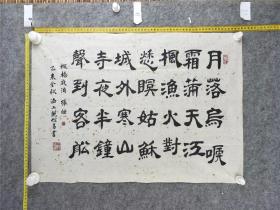 月落烏啼
霜滿天江
楓漁火對
愁瞑姑蘇
城外寒山
寺夜半鐘
聲到客舩
楓橋夜泊 張繼
乙未金秋